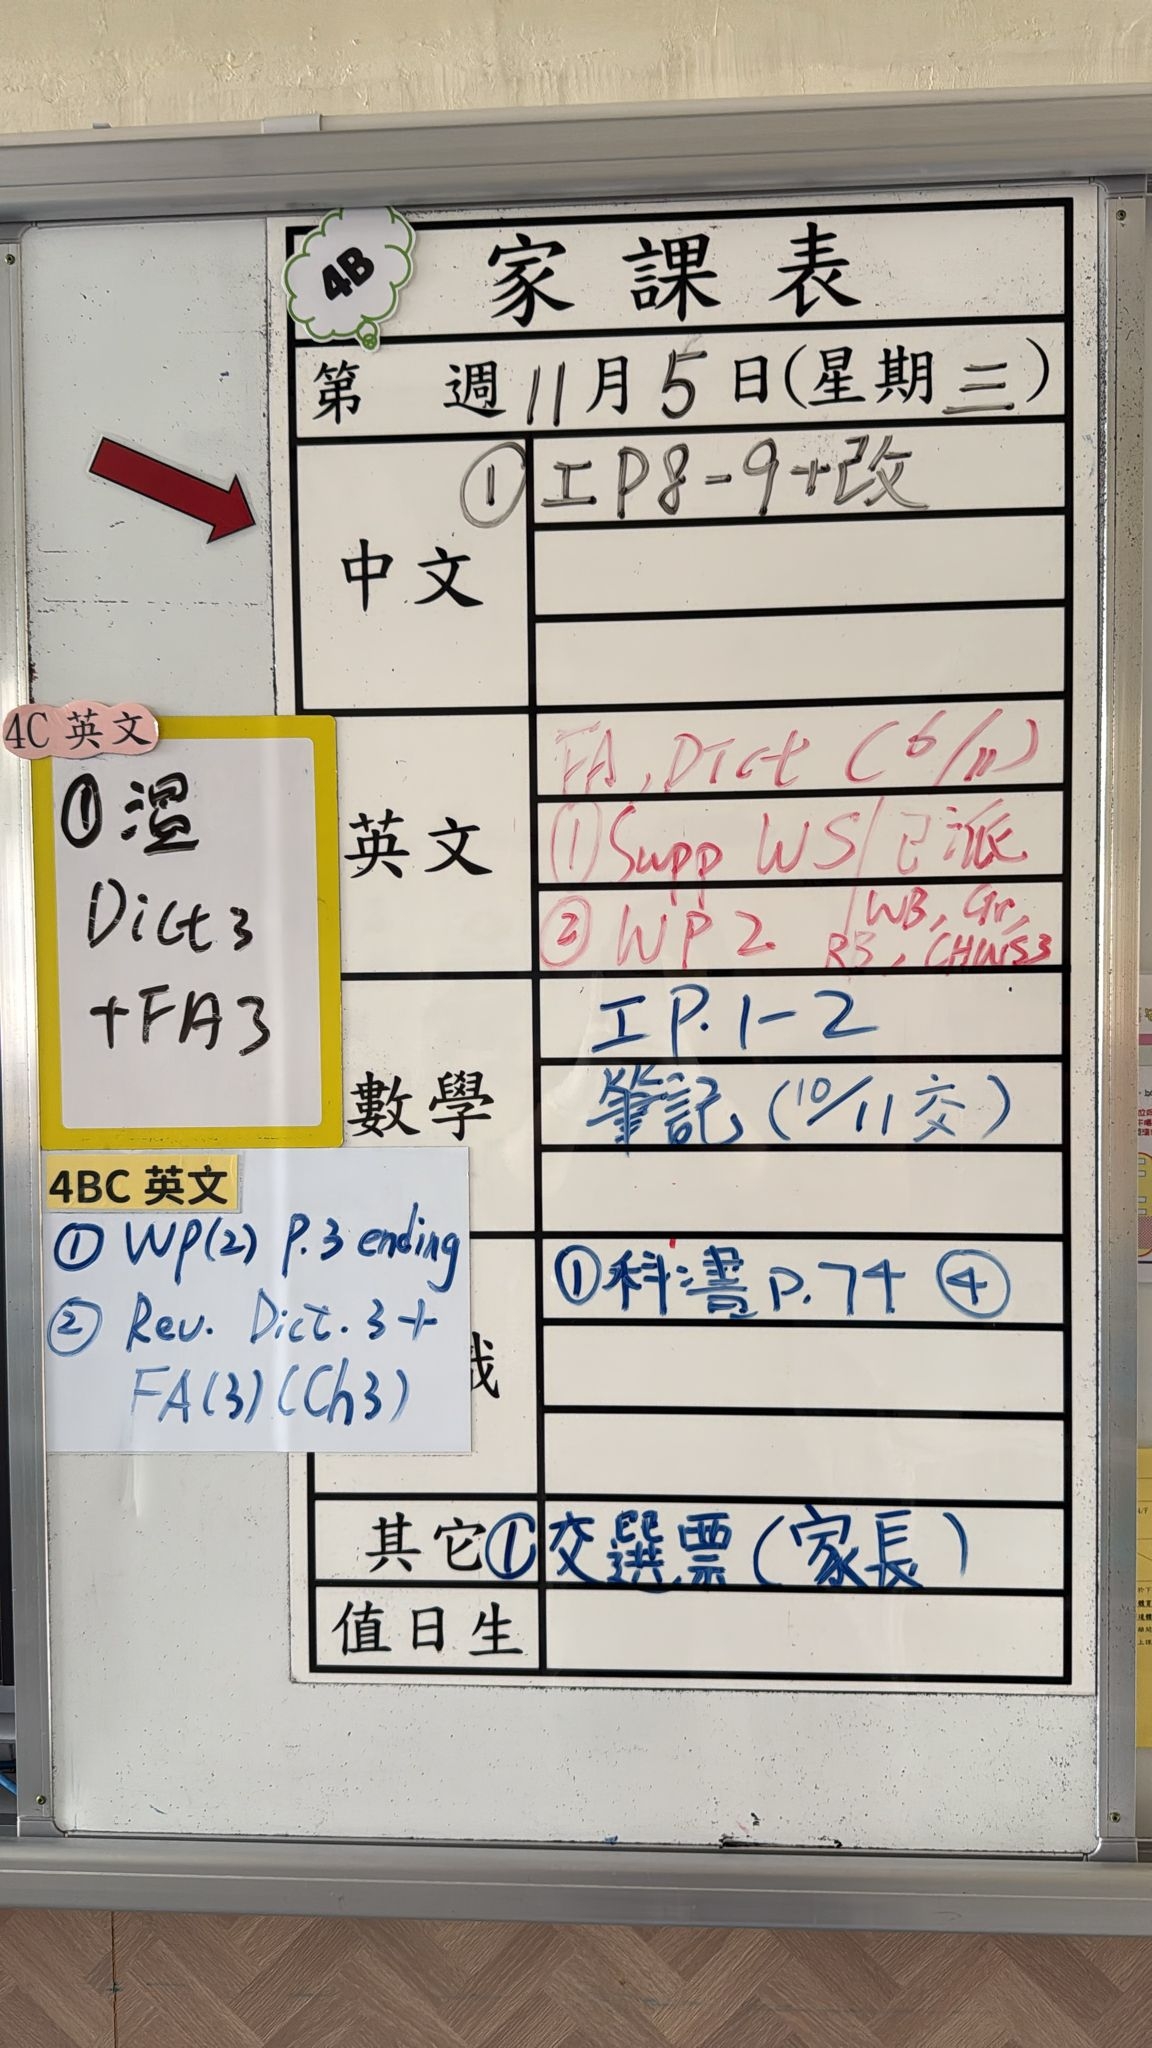 4B
家課表
第 週 11月5日(星期三)
中文
① 工P8-9+改
英文
FA, Dict (6/11)
① Supp WS/已派
② WP2 /WB, Gr,
RB, CHWS3
數學
工P.1-2
筆記 (10/11交)
① 科書 P.74 ④
其它 ① 交選票(家長)
值日生
4C 英文
① 溫
Dict 3
+FA3
4BC 英文
① WP(2) P.3 ending
② Rev. Dict. 3+
FA(3)(Ch3)